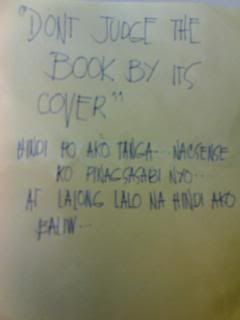 "DONT JUDGE THE
BOOK BY ITS
COVER"
HINDI PO AKO TANGA... NAGSENSE
KO PINAGSASABI NYO...
AT LALONG LALO NA HINDI AKO
BALIW...